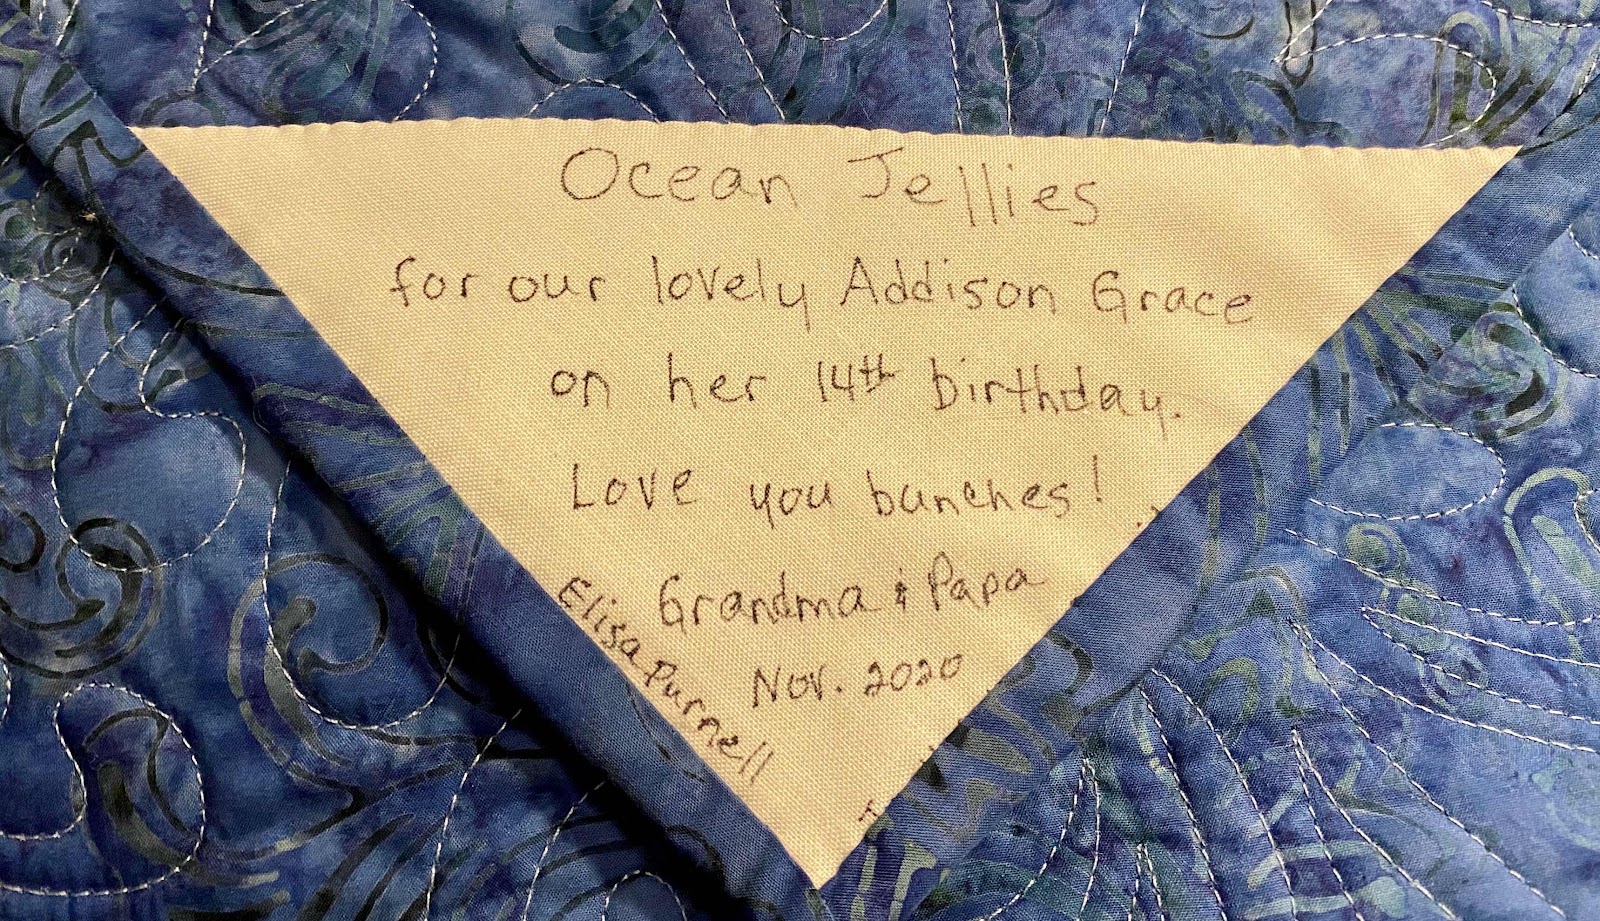 Ocean Jellies
for our lovely Addison Grace
on her 14th birthday.
Love you bunches!
Grandma & Papa
Elisa Purnell
Nov. 2020